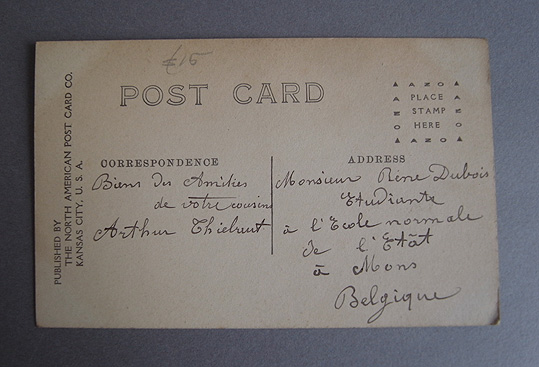 £15
POST CARD
AZO
PLACE
STAMP
HERE
AZO
PUBLISHED BY
THE NORTH AMERICAN POST CARD CO.
KANSAS CITY, U. S. A.
CORRESPONDENCE
Biens des Amitiés
de votre cousin
Arthur
ADDRESS
Monsieur Réné Dubois
Etudiante
à l'Ecole normale
de l'Etât
à Mons
Belgique